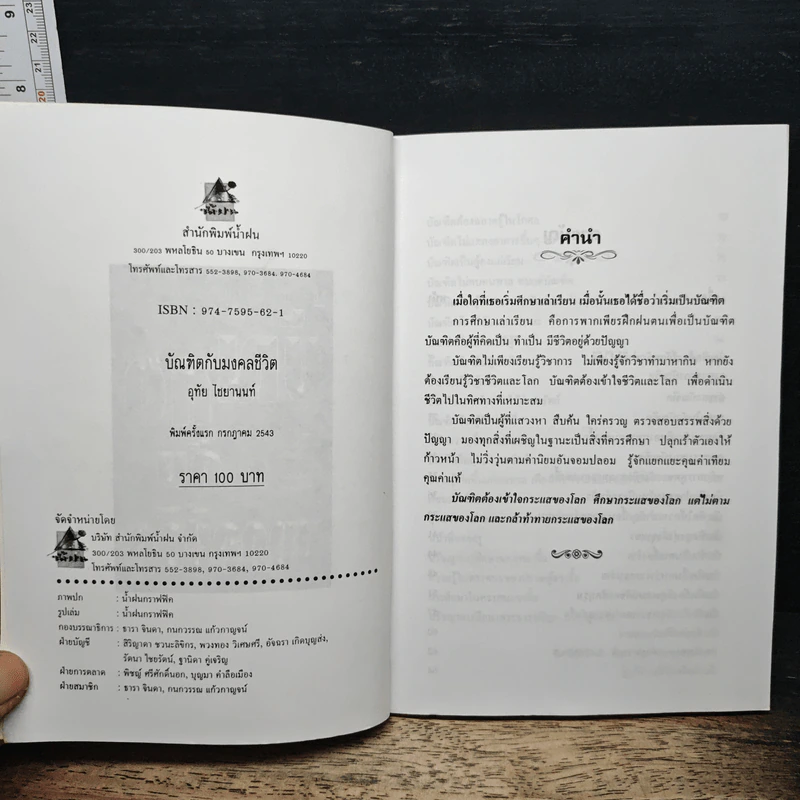 9
8
23
22
21
20
น้ำฝน
สำนักพิมพ์น้ำฝน
300/203 พหลโยธิน 50 บางเขน กรุงเทพฯ 10220
โทรศัพท์และโทรสาร 552-3898, 970-3684. 970-4684
ISBN : 974-7595-62-1
บัณฑิตกับมงคลชีวิต
อุทัย ไชยานนท์
พิมพ์ครั้งแรก กรกฎาคม 2543
ราคา 100 บาท
จัดจำหน่ายโดย
น้ำฝน
บริษัท สำนักพิมพ์น้ำฝน จำกัด
300/203 พหลโยธิน 50 บางเขน กรุงเทพฯ 10220
โทรศัพท์และโทรสาร 552-3898, 970-3684, 970-4684
ภาพปก : น้ำฝนกราฟฟิค
รูปเล่ม : น้ำฝนกราฟฟิค
กองบรรณาธิการ : ธารา จินดา, กนกวรรณ แก้วกาญจน์
ฝ่ายบัญชี : สิริญาดา ชวนะลิขิกร, พวงทอง วิเศษศรี, อัจฉรา เกิดบุญส่ง,
รัตนา ไชยรัตน์, ฐานิดา คู่เจริญ
ฝ่ายการตลาด : พิชญ์ ศรีศักดิ์นอก, บุญมา คำลือเมือง
ฝ่ายสมาชิก : ธารา จินดา, กนกวรรณ แก้วกาญจน์
คำนำ
เมื่อใดที่เธอเริ่มศึกษาเล่าเรียน เมื่อนั้นเธอได้ชื่อว่าเริ่มเป็นบัณฑิต
การศึกษาเล่าเรียน คือการพากเพียรฝึกฝนตนเพื่อเป็นบัณฑิต
บัณฑิตคือผู้ที่คิดเป็น ทำเป็น มีชีวิตอยู่ด้วยปัญญา
บัณฑิตไม่เพียงเรียนรู้วิชาการ ไม่เพียงรู้จักวิชาทำมาหากิน หากยัง
ต้องเรียนรู้วิชาชีวิตและโลก บัณฑิตต้องเข้าใจชีวิตและโลก เพื่อดำเนิน
ชีวิตไปในทิศทางที่เหมาะสม
บัณฑิตเป็นผู้ที่แสวงหา สืบค้น ใคร่ครวญ ตรวจสอบสรรพสิ่งด้วย
ปัญญา มองทุกสิ่งที่เผชิญในฐานะเป็นสิ่งที่ควรศึกษา ปลุกเร้าตัวเองให้
ก้าวหน้า ไม่วิ่งวุ่นตามค่านิยมอันจอมปลอม รู้จักแยกแยะคุณค่าเทียม
คุณค่าแท้
บัณฑิตต้องเข้าใจกระแสของโลก ศึกษากระแสของโลก แต่ไม่ตาม
กระแสของโลก และกล้าท้าทายกระแสของโลก